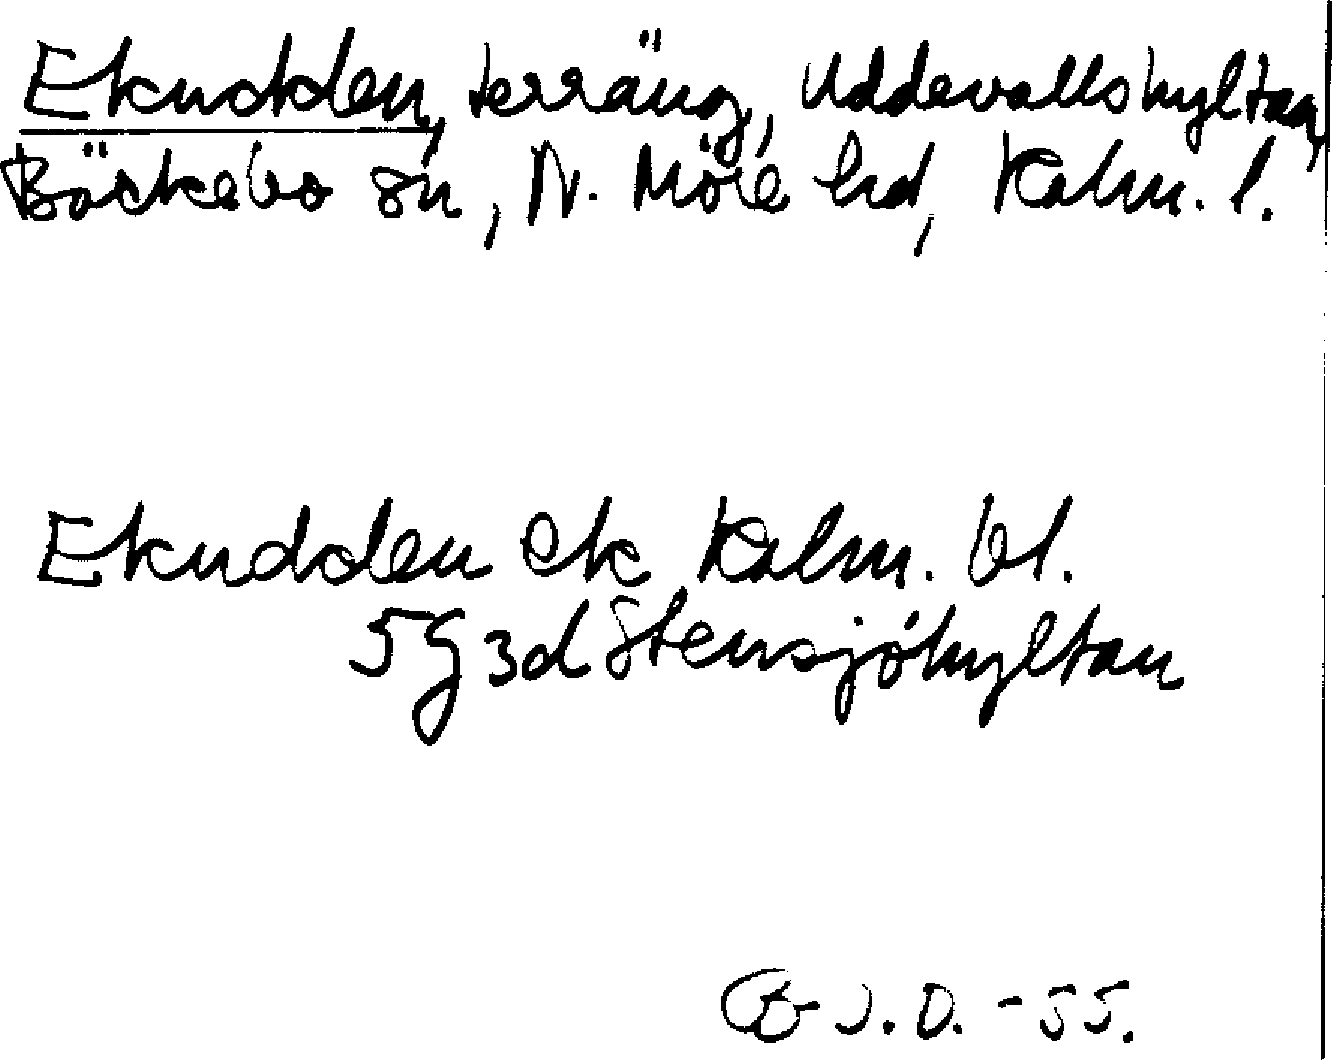 Ekudden, terräng, Uddevallshyltan,
Bäckebo sn, N. Möre hd, Kalm. l.
Ekudden ek Kalm. bl.
5G3d Stensjöhyltan
J.D. -55.